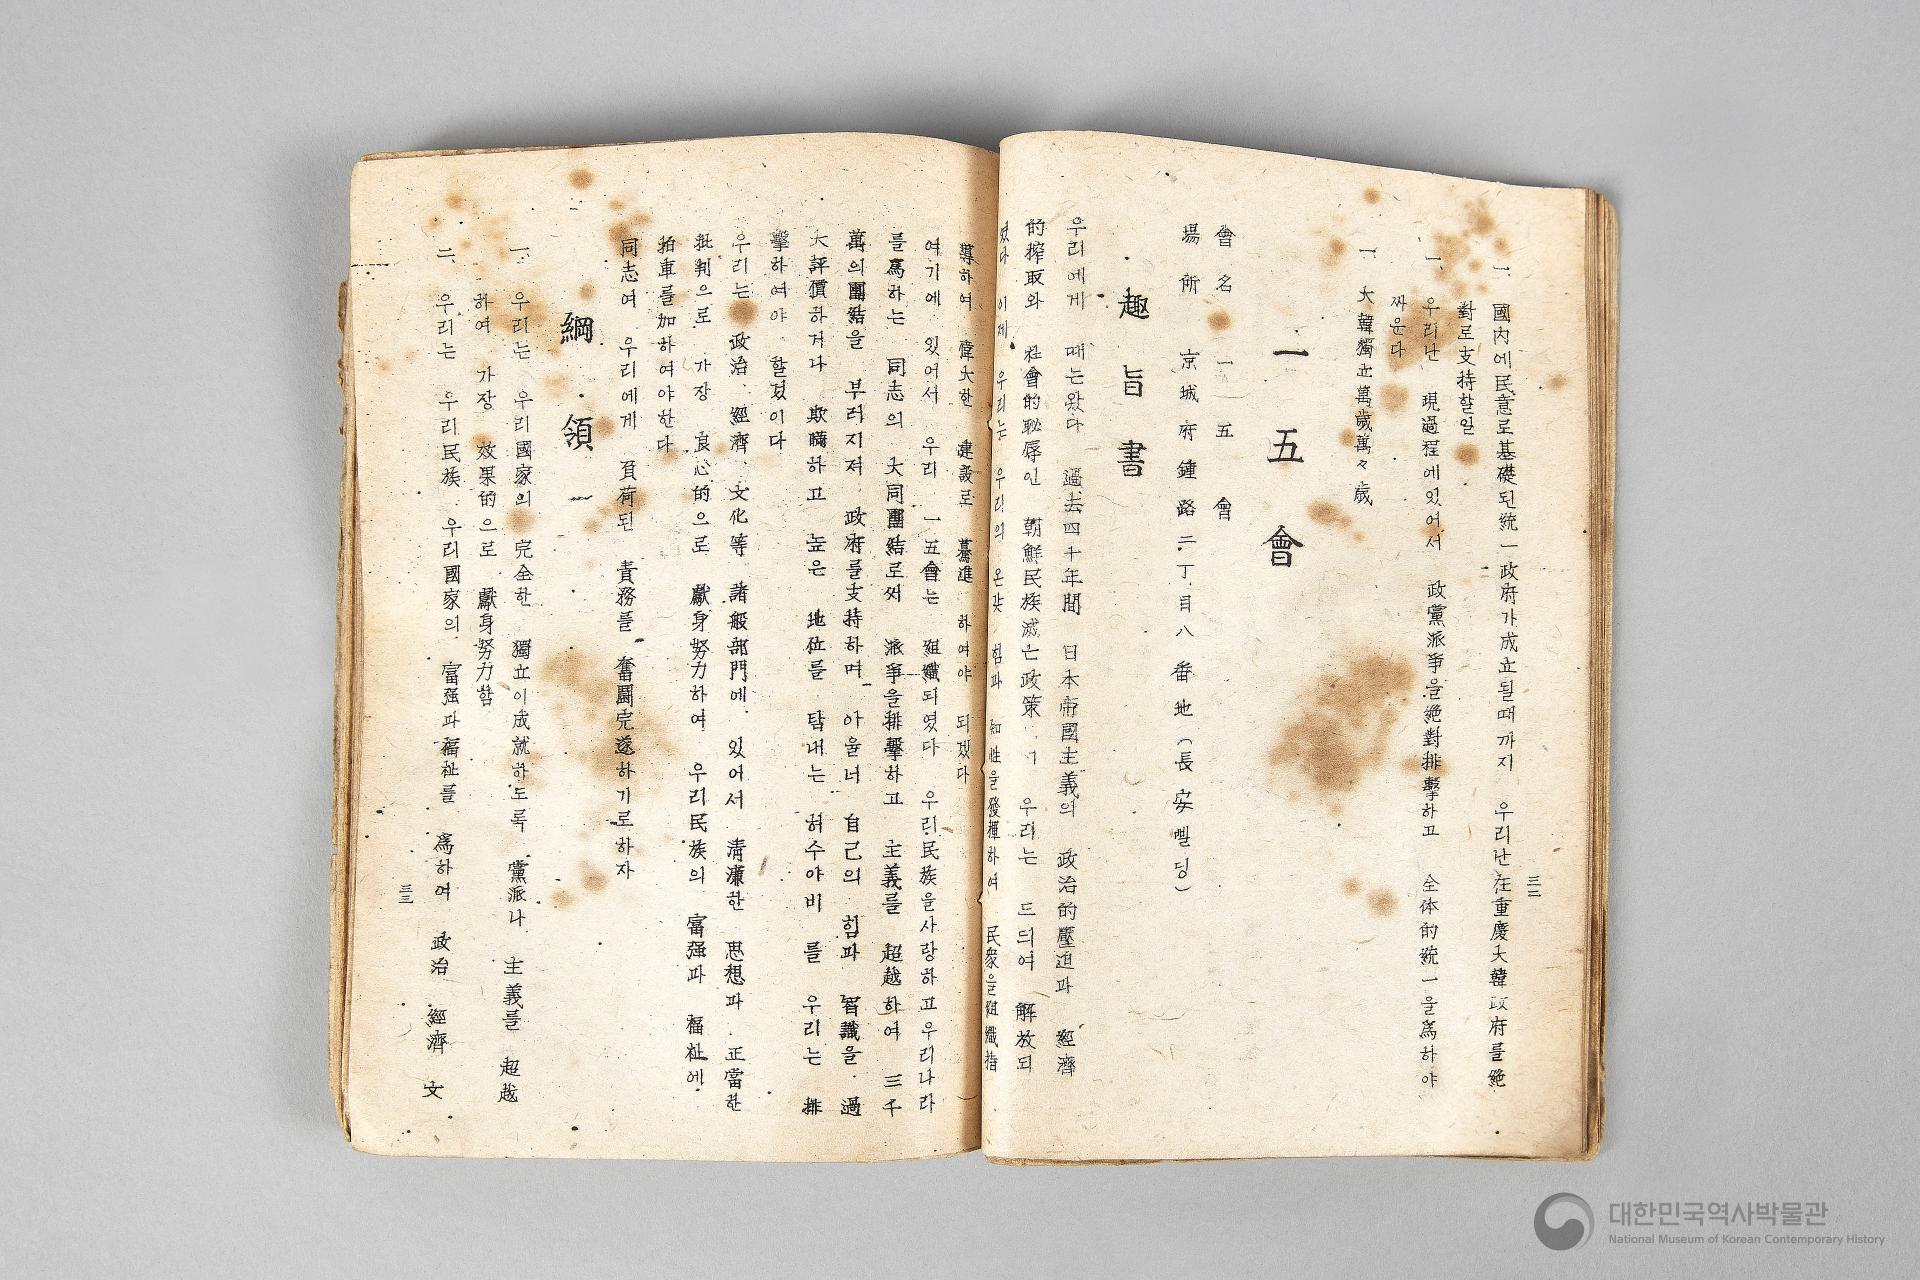 一、國內에民意로基礎된統一政府가成立될때까지 우리난在重慶大韓政府를絶
對로支持할일
一、우리난 現過程에있어서 政黨派爭을絶對排擊하고 全体的統一을爲하야
싸운다
一、大韓獨立萬歲萬々歲
三二
一五會
會名 一五會
場所 京城府鍾路二丁目八番地(長安삘딩)
趣旨書
우리에게 때는왔다 過去四十年間 日本帝國主義의 政治的壓迫과 經濟
的搾取와 社會的恥辱인 朝鮮民族滅亡政策 우리는 드듸여 解放되
였다 이제 우리는 우리의 온갖 힘과 知性을發揮하여 民衆을組織指
導하여 偉大한 建設로 驀進 하여야 되겠다
여기에 있어서 우리 一五會는 組織되였다 우리民族을사랑하고우리나라
를爲하는 同志의 大同團結로써 派爭을排擊하고 主義를 超越하여 三千
萬의團結을 부러지저 政府를支持하며 아울너 自己의 힘과 智識을 過
大評價하거나 欺瞞하고 높은 地位를 탐내는 허수아비 를 우리는 排
擊하여야 할것이다
우리는 政治、經濟、文化等 諸般部門에 있어서 淸廉한 思想과 正當한
批判으로 가장 良心的으로 獻身努力하여 우리民族의 富强과 福祉에
拍車를加하여야한다
同志여 우리에게 負荷된 責務를 奮鬪完遂하기로하자
綱領
一、우리는 우리國家의 完全한 獨立이成就하도록 黨派나 主義를 超越
하여 가장 效果的으로 獻身努力함
二、우리는 우리民族 우리國家의 富强과福祉를 爲하여 政治 經濟 文
三三
대한민국역사박물관
National Museum of Korean Contemporary History